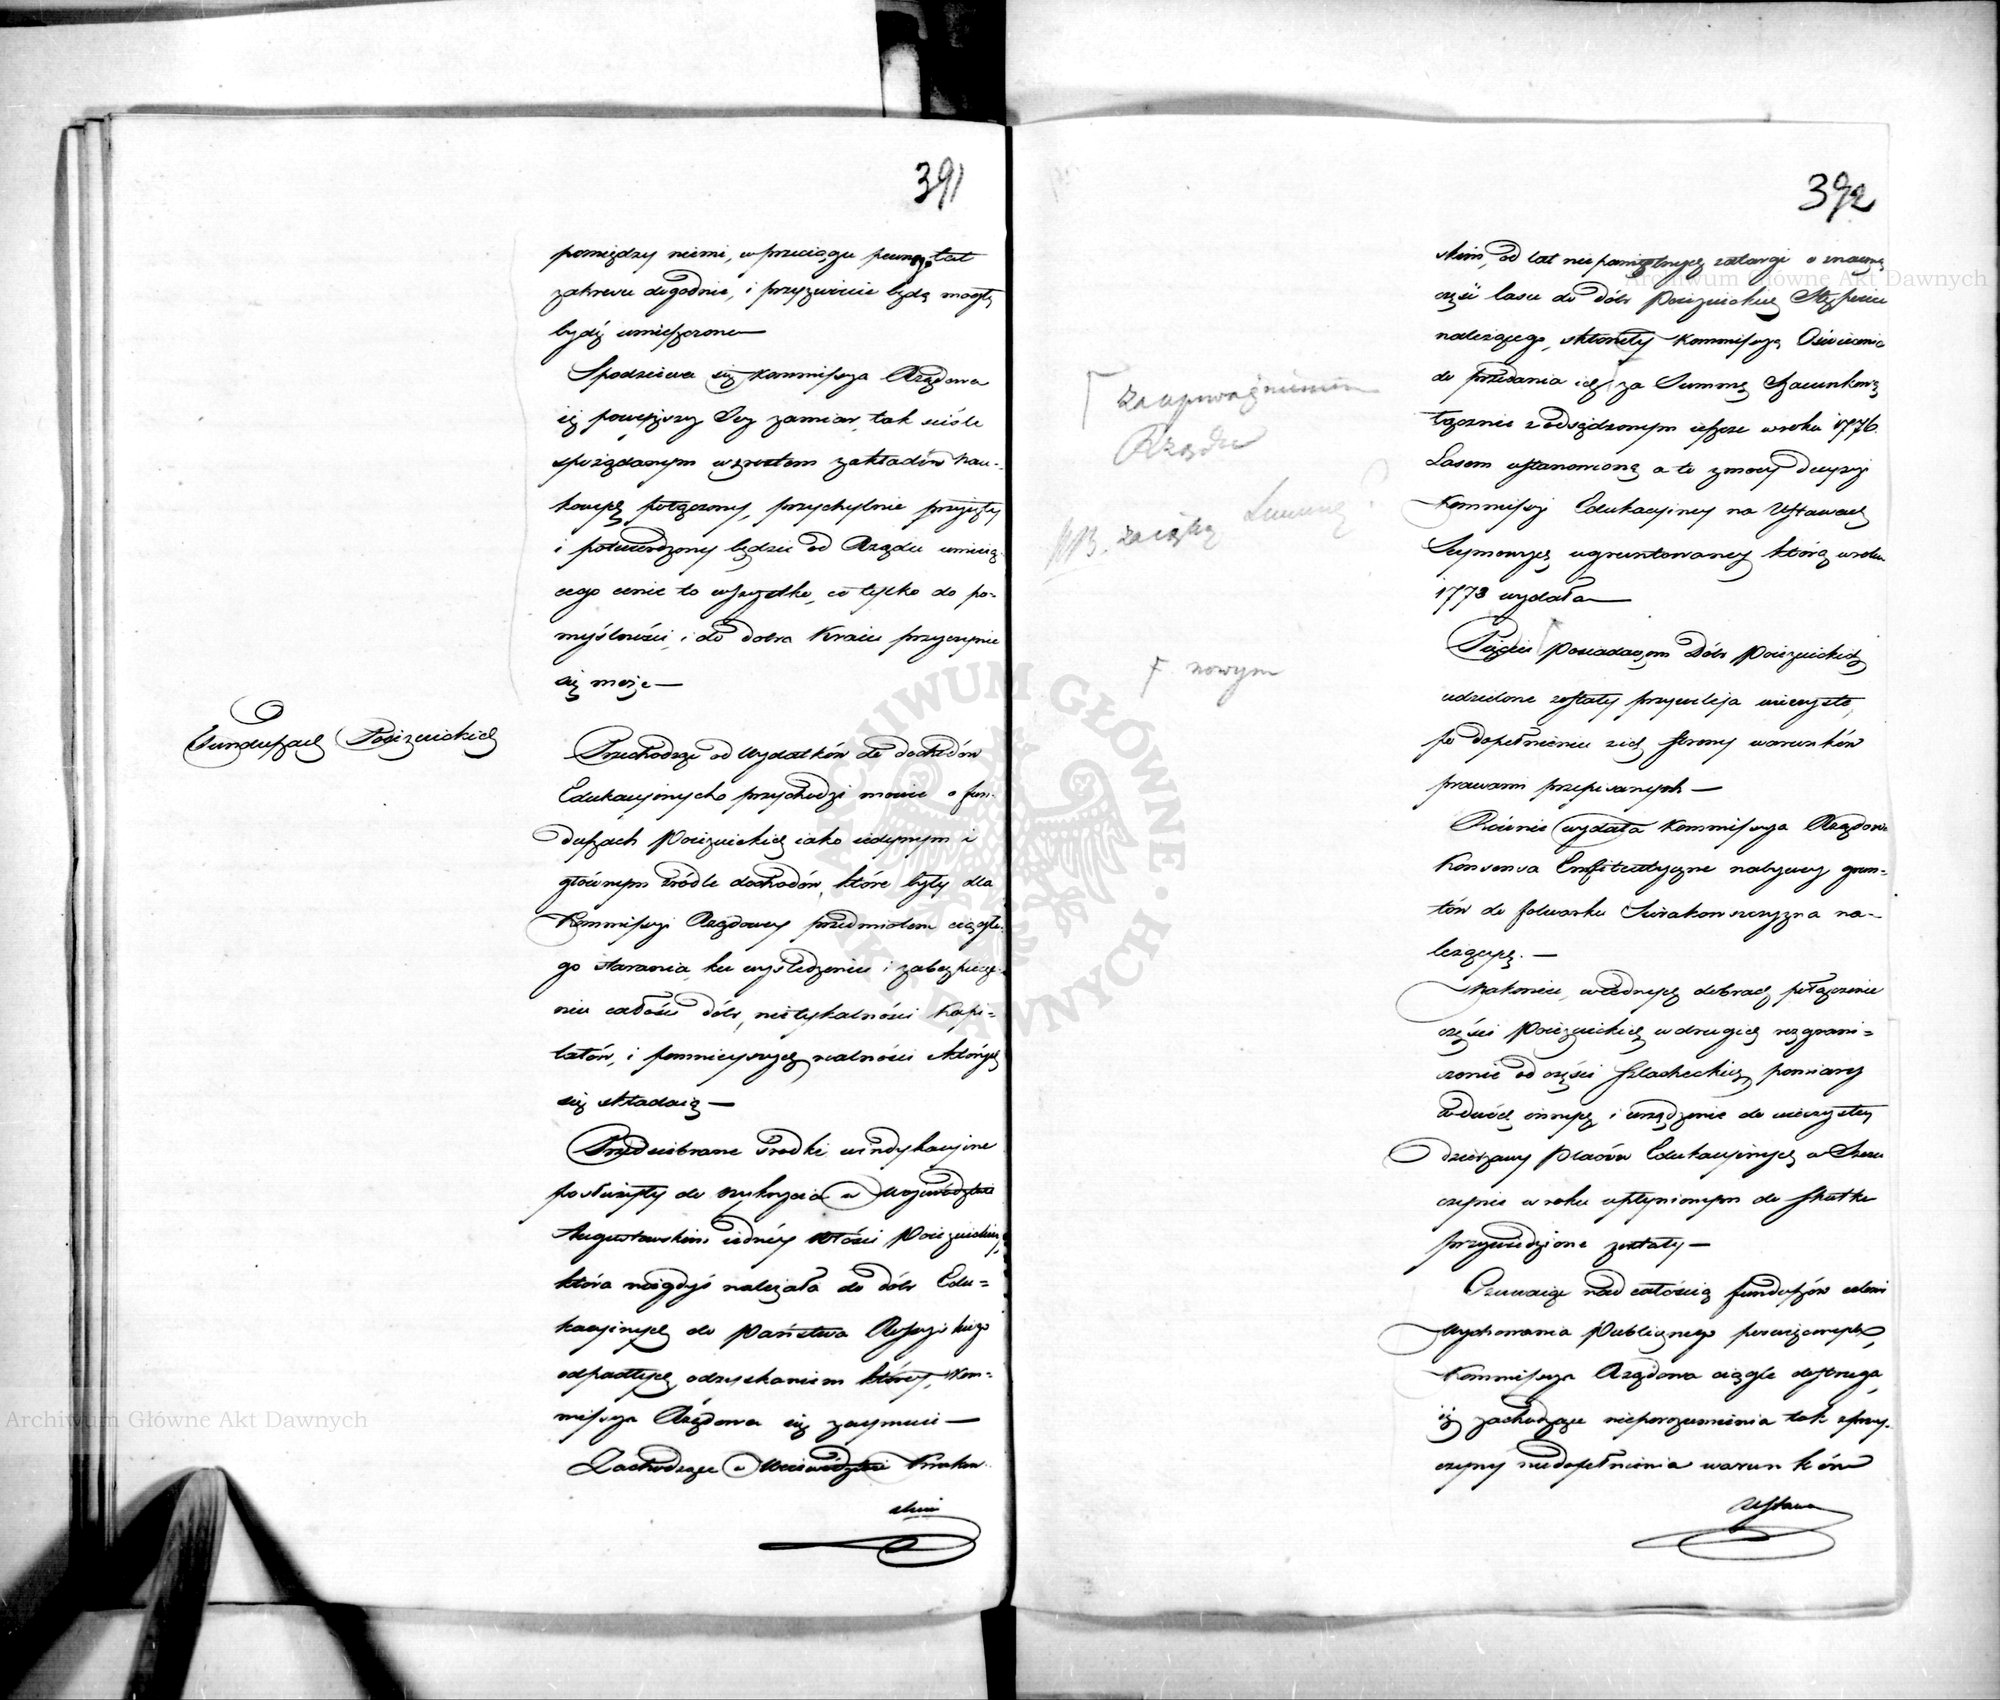 391
pomiędzy niemi, w przeciągu pewnego lat
zakresu dogodnie, i przyzwoicie będą mogły
bydź umieszczone
Spodziewa się Kommissya Rządowa
iż powyższy Jey zamiar, tak ściśle
z pożądanym wzrostem zakładów Nau-
kowych połączony, przychylnie przyięty
i potwierdzony będzie od Rządu umieią-
cego cenić to wszystko, co tylko do po-
myślności, i do dobra Kraiu przyczynić
się może
Funduszach Pojezuickich
Przechodząc od Wydatków do dochodów
Edukacyinych przychodzi mówić o fun-
duszach Pojezuickich iako iedynym i
głównym źródle dochodów, które były dla
Kommissyi Rządowey przedmiotem ciągłe-
go starania, ku wyśledzeniu i zabezpiecze-
niu całości dóbr, nietykalności Kapi-
tałów, i pomnieyszych realności z których
się składaią
Przedsiębrane środki windykacyine
posłużyły do odkrycia w Województwie
Augustowskim iedney Włości Pojezuickiey,
która niegdyś należała do dóbr Edu-
kacyinych do Państwa Rossyiskiego
odpadłych, odzyskaniem którey, Kom-
missya Rządowa się zaymuie
Zachodzące w Województwie Krakow-
skim
392
skim, od lat niepamiętnych zatargi o znaczną
część lasu do dóbr Pojezuickich Stężyca
należącego, skłoniły Kommissyą Oświecenia
do przedania ich za Summę Szacunkową
łącznie z odsądzonym ieszcze w roku 1776
Lasem ustanowioną a to z mocy decyzyi
Kommissyi Edukacyiney na Ustawach
Seymowych ugruntowaney którą w roku
1773 wydała
Pięciu Posiadaczom Dóbr Pojezuickich
udzielone zostały przywileja wieczyste,
po dopełnieniu z ich strony warunków
prawami przepisanych
Równie wydała Kommissya Rządowa
Konsensa Emfiteutyczne nabywcy grun-
tów do folwarku Sierakowszczyzna na-
leżących.
Nakoniec, w iednych dobrach połączenie
części Pojezuickich w drugich rozgrani-
czenie od części szlacheckich, pomiary
w dwóch innych i urządzenie do wieczystey
dzierżawy Placów Edukacyinych w Szczu
czynie w roku upłynionym do skutku
przywiedzione zostały
Czuwaiąc nad całością funduszów celowi
Wychowania Publicznego poświęconych,
Kommissya Rządowa ciągle dostrzega
iż zachodzące nieporozumienia tak z przy-
czyny niedopełnienia warunków
Ustawa
za upoważnieniem
Rządu
NB. za iaką Summę?
nowym
ARCHIWUM GŁÓWNE AKT DAWNYCH
Archiwum Główne Akt Dawnych
Archiwum Główne Akt Dawnych